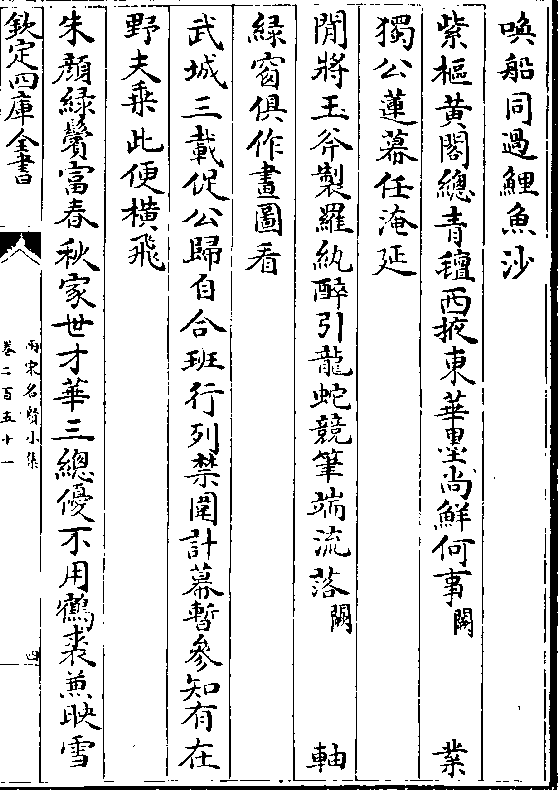 喚船同過鯉魚沙
紫樞黃閣總青氊西掖東華墨尚鮮何事闕 業
獨公蓮幕任淹延
閒將玉斧製羅紈醉引龍蛇競筆端流落闕 軸
綠窗俱作畫圖看
武城三載促公歸自合班行列禁闈計幕暫參知有在
野夫乗此便橫飛
朱顔綠鬢富春秋家世才華三總優不用鶴裘兼映雪
欽定四庫全書
兩宋名賢小集
卷二百五十一
四